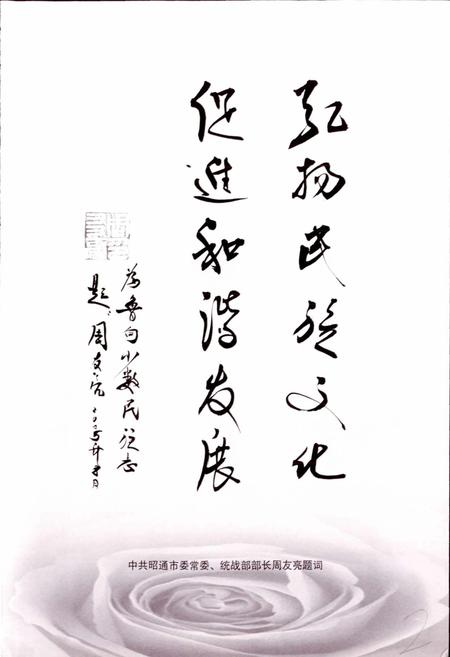 弘扬民族文化
促進和谐发展
为鲁甸少数民族志
题：周友亮
中共昭通市委常委、统战部部长周友亮题词
2